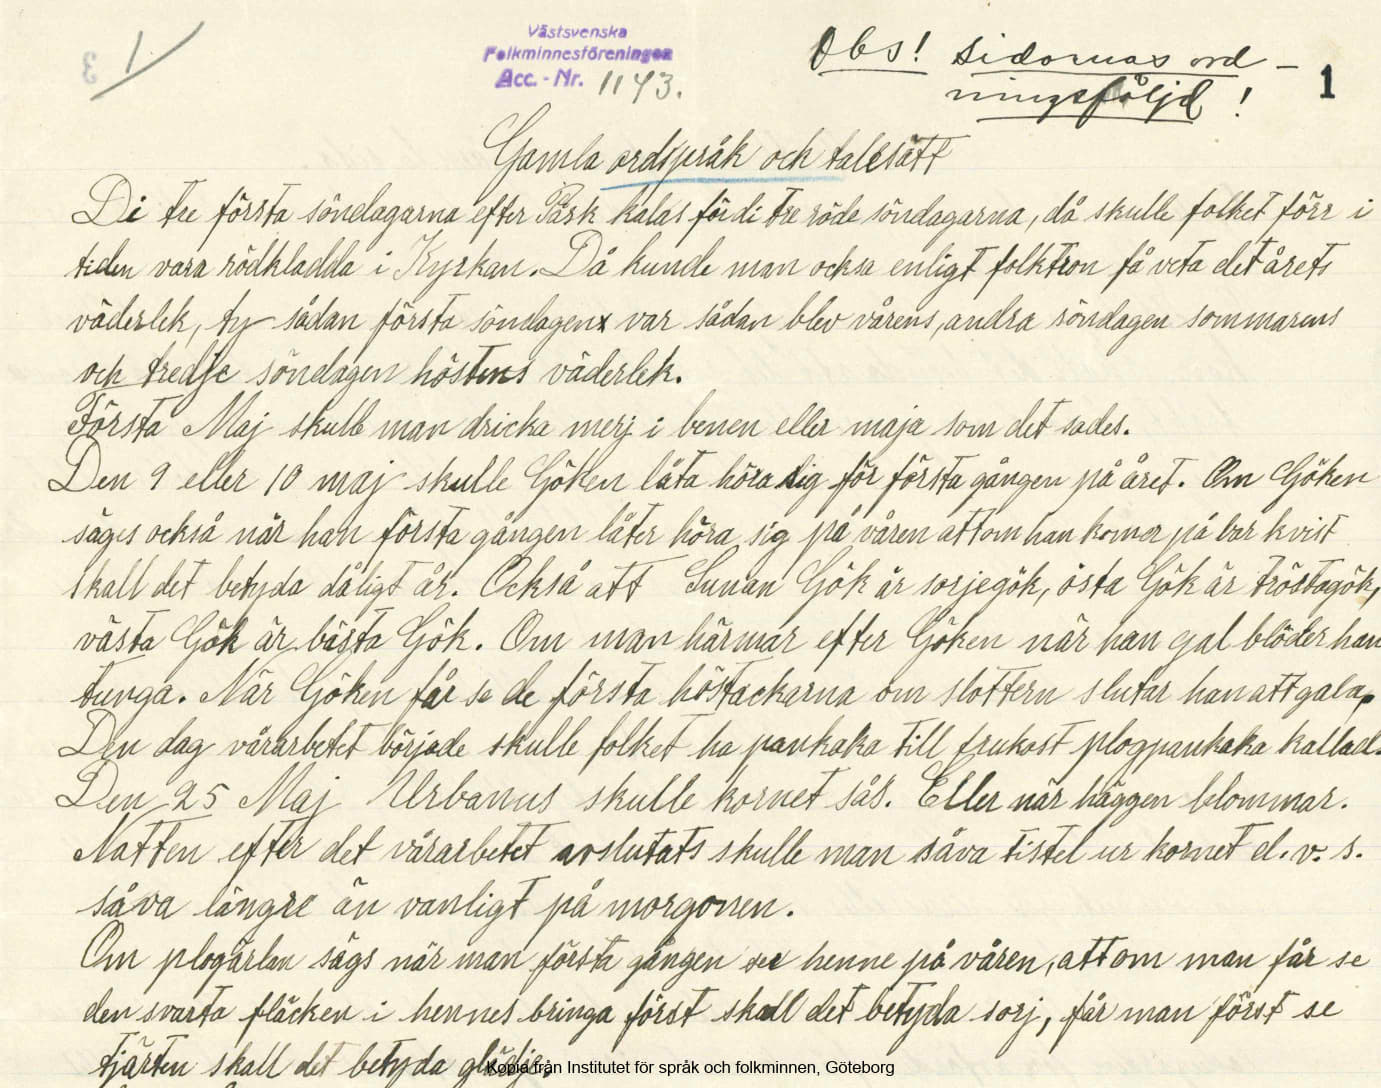 1
3
Västsvenska
Folkminnesföreningen
Acc. - Nr. 1143.
Obs! sidornas ord-
ningsföljd!
1
Gamla ordspråk och talesätt
Di tre första söndagarna efter Påsk kalas för di tre röde söndagarna, då skulle folket förr i
tiden vara rödkladda i Kyrkan. Då kunde man ocksa enligt folktron få veta det årets
väderlek, ty sådan första söndagen var sådan blev vårens, andra söndagen sommarens
och tredje söndagen höstens väderlek.
Första Maj skulle man dricka merj i benen eller maja som det sades.
Den 9 eller 10 maj skulle Göken låta höra sig för första gången på året. Om Göken
säges också när han första gången låter höra sig på våren att om han komer på bar kvist
skall det betyda dåligt år. Också att Sunan Gök är sorjegök, östa Gök är tröstagök,
västa Gök är bästa Gök. Om man härmar efter Göken när han gal blöder han
tunga. När Göken får se de första höstackarna om slottern slutar han att gala.
Den dag vårarbetet började skulle folket ha pankaka till frukost plogpankaka kallad.
Den 25 Maj Urbanus skulle kornet sås. Eller när häggen blommar.
Natten efter det vårarbetet avslutats skulle man såva tistel ur kornet d. v. s.
såva längre än vanligt på morgonen.
Om plogärlan sägs när man första gången ser henne på våren, att om man får se
den svarta fläcken i hennes bringa först skall det betyda sorj, får man först se
tjärten skall det betyda glädje.
Kopia från Institutet för språk och folkminnen, Göteborg